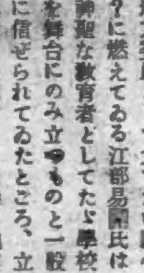 ？に燃えてゐる江部易圀氏は
神聖な敎育者としてたゞ學校
を舞台にのみ立つものと一般
に信ぜられてゐたところ、立